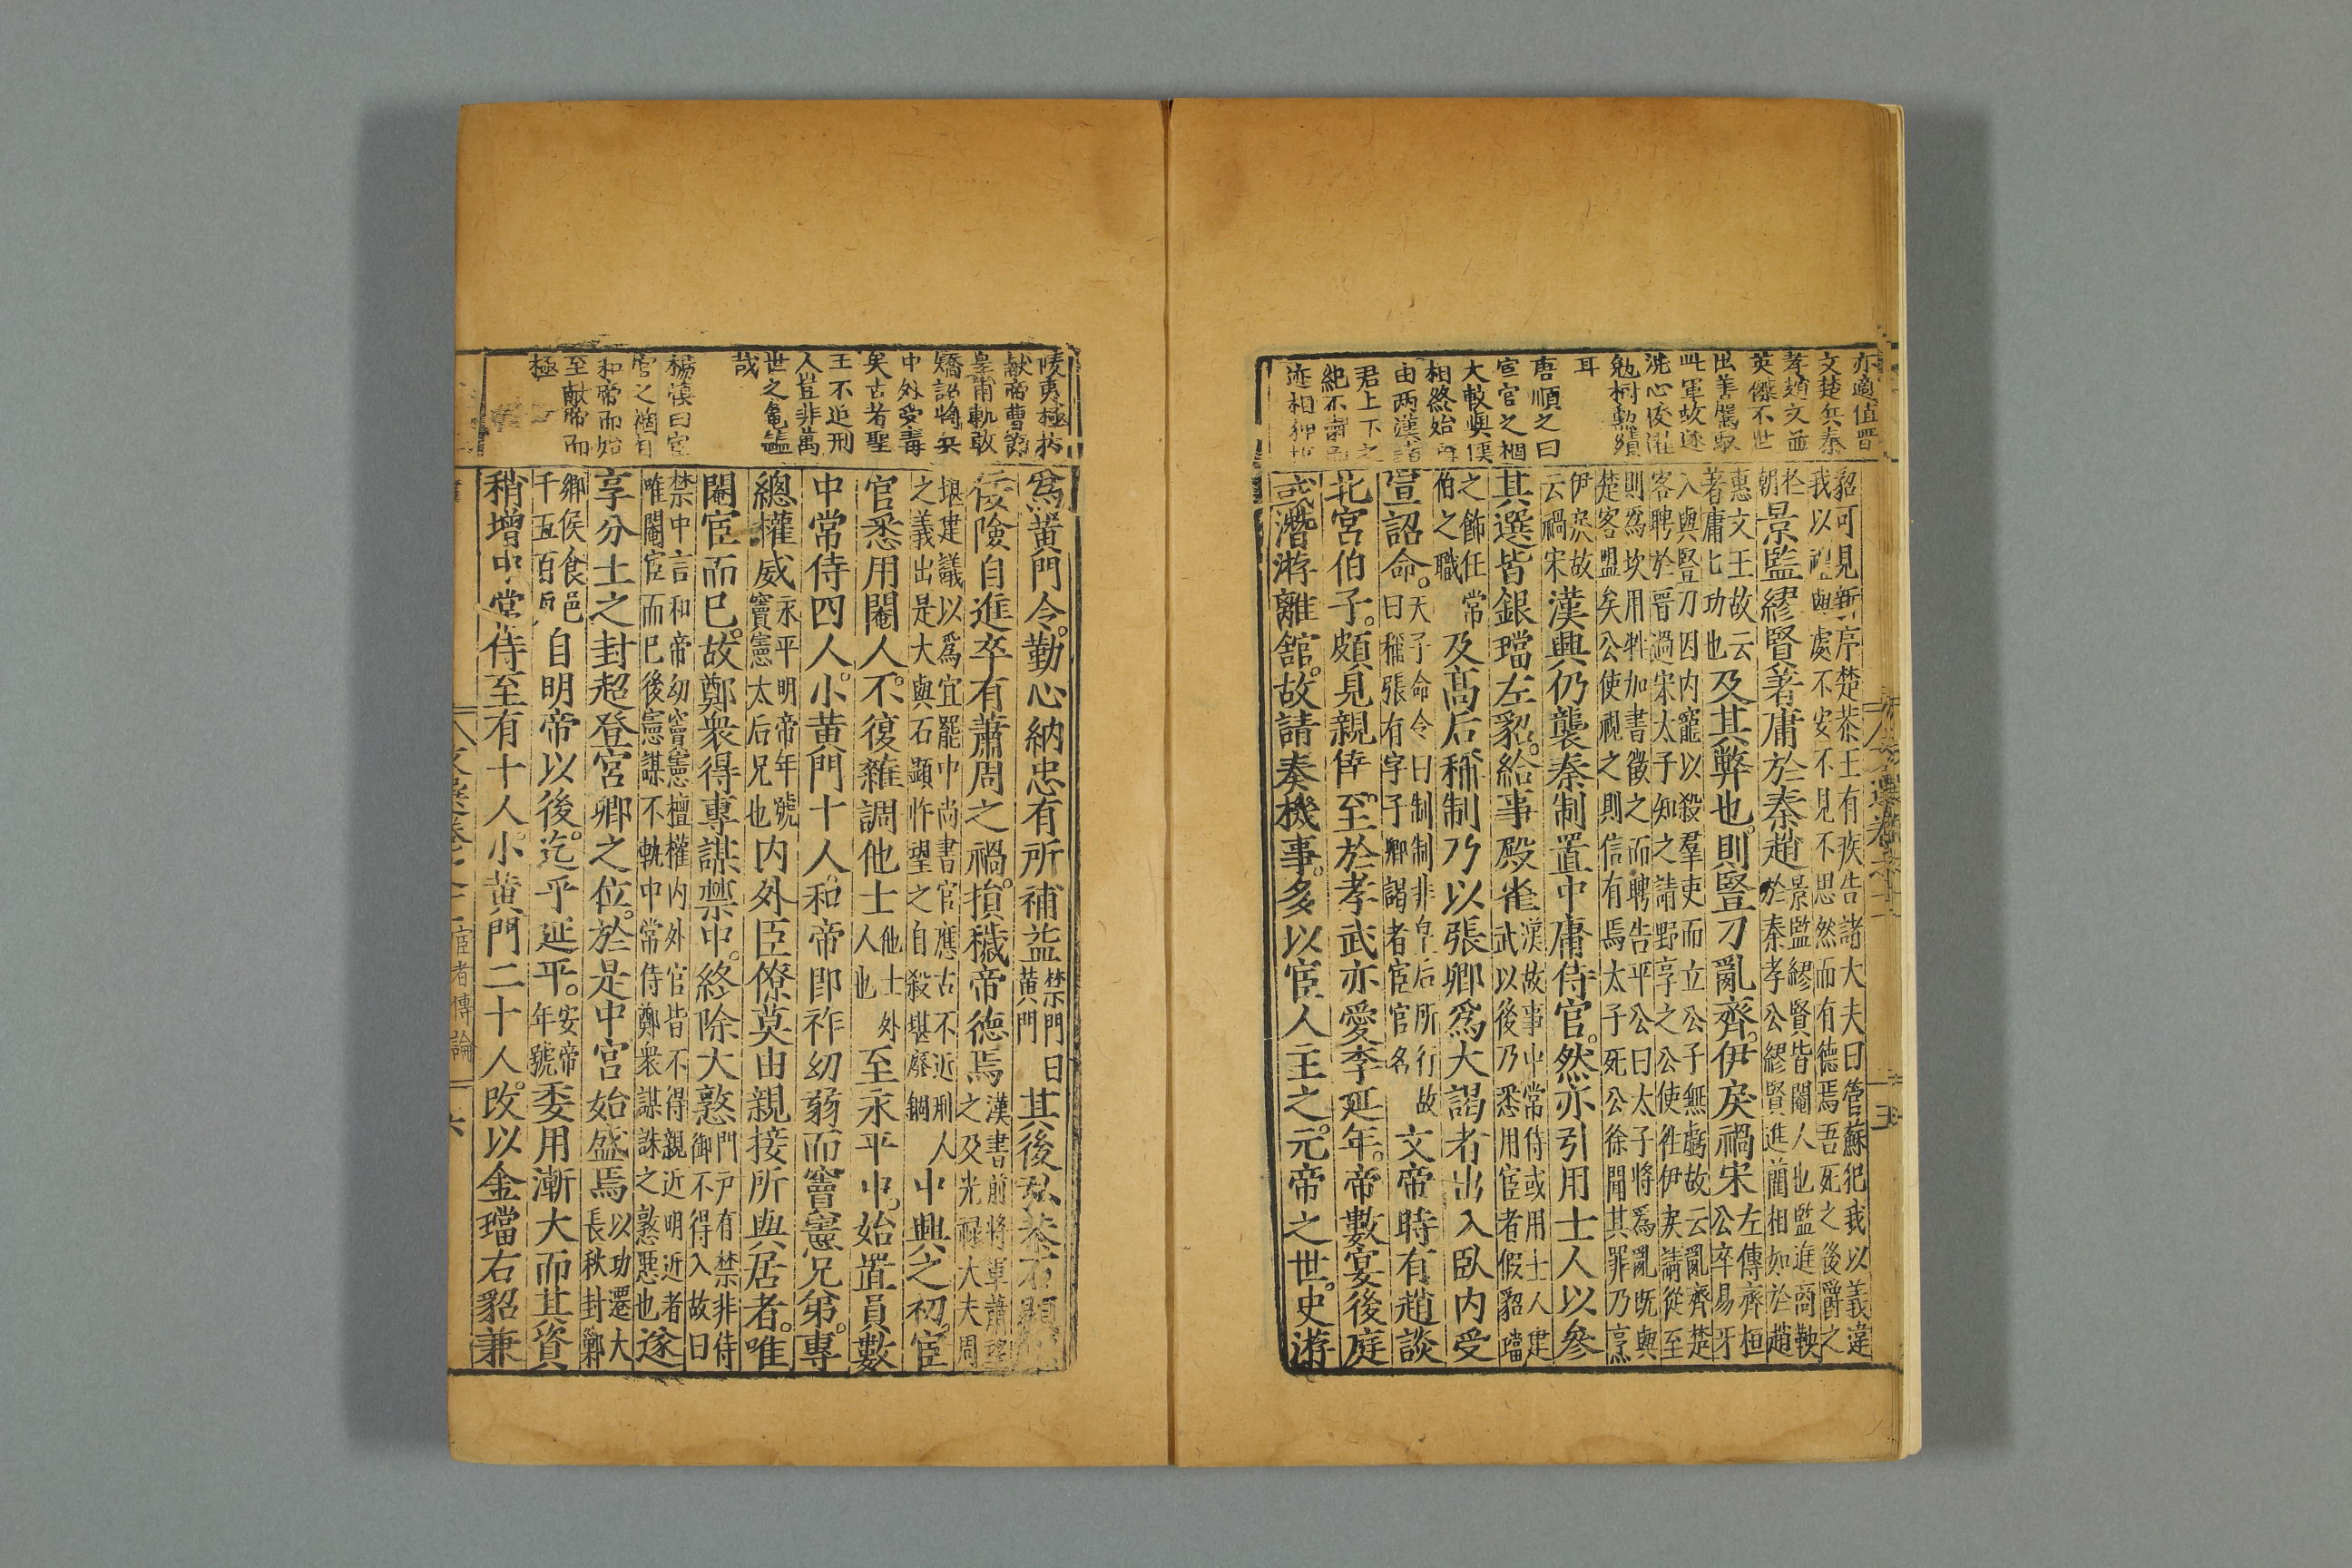 亦適值晉
文楚兵秦
孝趙文並
英傑不世
出善駕馭
此軍故遂
洗心浚濯
勉樹勲績
耳
唐順之曰
宦官之禍
大較與漢
相終始
由两漢諸
君上下之
紀不肅而
迹相狎
貂可見新序楚恭王有疾告諸大夫曰管蘇犯我以義違
我以禮與處不安不見不思然而有德焉吾死之後爵之
於朝景監繆賢著庸於秦趙景監繆賢皆閹人也監進商鞅
於秦孝公繆賢進藺相如於趙
惠文王故云
著庸匕功也及其弊也則豎刁亂齊。伊戾禍宋左傳齊桓
公卒易牙
入與豎刁因内寵以殺羣吏而立公子無虧故云亂齊楚
客聘於晉過宋太子知之請野享之公使往伊戾請從至
則爲坎用牲加書徵之而聘告平公曰太子將爲亂旣與
楚客盟矣公使視之則信有焉太子死公徐聞其罪乃烹
伊戾故
云禍宋漢興仍襲秦制置中庸侍官。然亦引用士人以參
其選皆銀璫左貂。給事殿省漢故事中常侍或用士人建
武以後乃悉用宦者假貂璫
之飾任常
伯之職及高后稱制乃以張卿爲大謁者出入卧内受
宣詔命。天子命令曰制制非皇后所行故
曰稱張有字子卿謁者宦官名文帝時有趙談
北宮伯子。頗見親倖。至於孝武亦愛李延年。帝數宴後庭
或潛游離舘。故請奏機事。多以宦人主之。元帝之世。史游
文選卷十二
五
陵夷極於
献帝曹節
皇甫軌敢
矯詔將兵
中外受毒
矣古者聖
王不近刑
人豈非萬
世之龜鑑
哉
楊慎曰宦
官之禍自
和帝而始
至献帝而
極
爲黄門令。勤心納忠有所補益禁門曰
黄門其後弘恭石顯
佞險自進卒有蕭周之禍。損穢帝德焉漢書前將軍蕭望
之及光禄大夫周
堪建議以爲宜罷中尚書官應古不近刑人
之義出是大與石顯忤望之自殺堪廢錮中興之初。宦
官悉用閹人。不復雜調他士他士外
人也至永平中。始置員數
中常侍四人。小黄門十人。和帝即祚幼弱而竇憲兄弟。專
總權威永平明帝年號
竇憲太后兄也内外臣僚莫由親接所與居者。唯
閹宦而已。故鄭衆得專謀禁中。終除大憝門户有禁非侍
御不得入故曰
禁中言和帝幼竇憲擅權内外官皆不得親近明近者
唯閹宦而已後憲謀不軌中常侍鄭衆謀誅之憝惡也遂
享分土之封超登宮卿之位。於是中官始盛焉以功遷大
長秋封鄭
卿侯食邑
千五百户自明帝以後。迄乎延平。安帝
年號委用漸大而其資
稍增中常侍至有十人。小黄門二十人。改以金璫右貂兼
文選卷十二宦者傳論
六